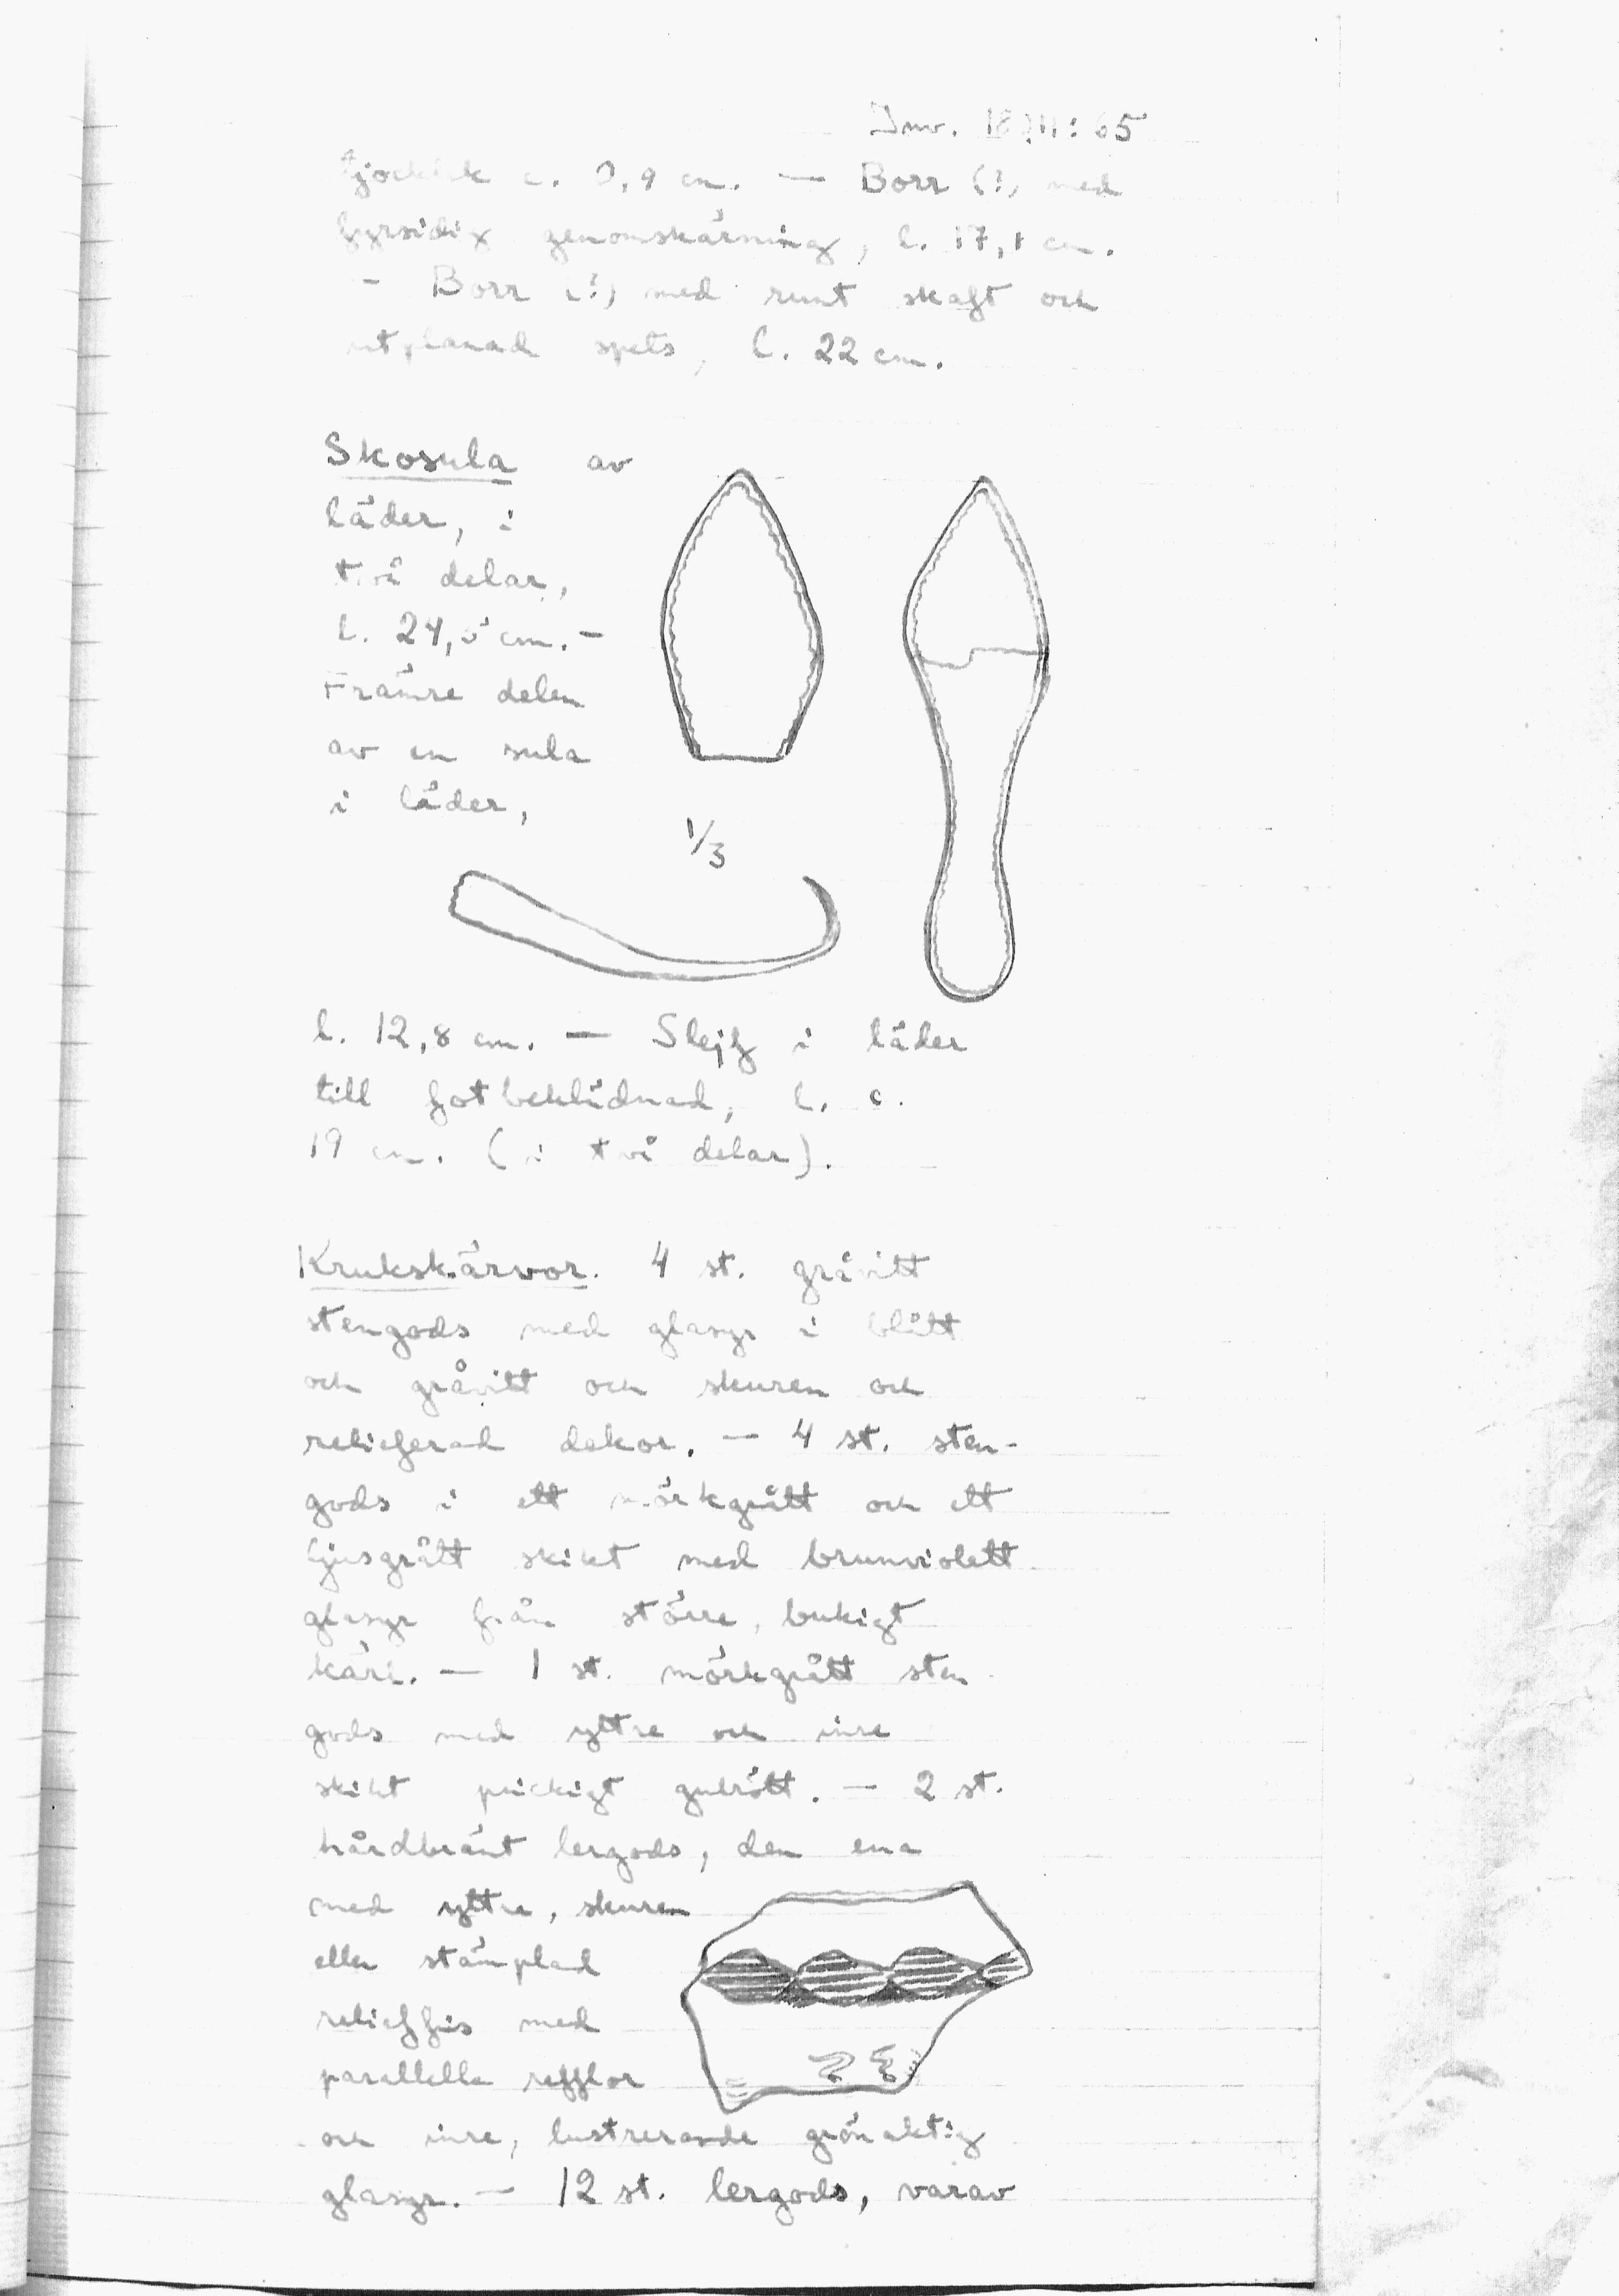 Inv. 18711:65
tjocklek c. 0,9 cm. — Borr (?) med
fyrsidig genomskärning, l. 17,1 cm.
- Borr (?) med runt skaft och
utplanad spets, l. 22 cm.
Skosula av
läder, i
två delar,
l. 24,5 cm. -
Främre delen
av en sula
i läder,
1/3
l. 12,8 cm. — Slejf i läder
till fotbeklädnad, l. c.
19 cm. (i två delar).
Krukskärvor. 4 st. gråvitt
stengods med glasyr i blått
och gråvitt och skuren och
relieferad dekor. — 4 st. sten-
gods i ett mörkgrått och ett
ljusgrått skikt med brunviolett
glasyr från större, bukigt
kärl. — 1 st. mörkgrått sten
gods med yttre och inre
skikt prickigt gulrött. — 2 st.
hårdbränt lergods, den ena
med yttre, skuren
eller stämplad
relieffris med
parallella refflor
och inre, lustrerande grönaktig
glasyr. — 12 st. lergods, varav